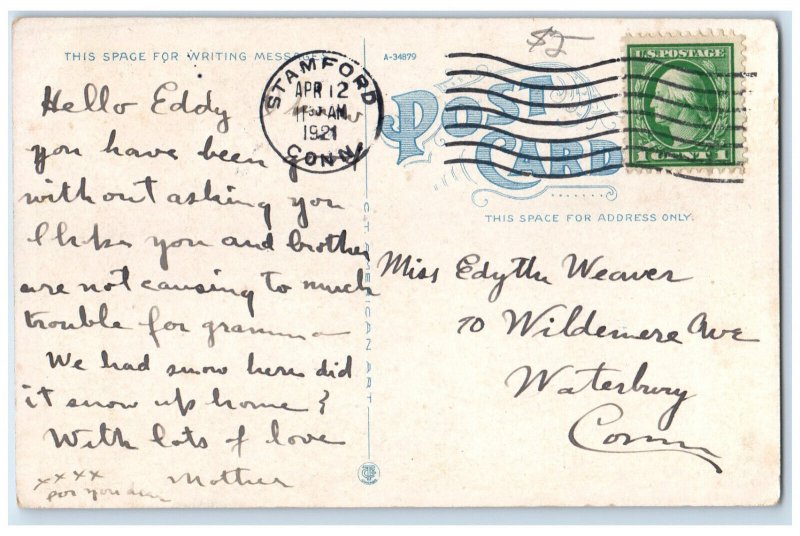 THIS SPACE FOR WRITING MESSAGES
Hello Eddy
you have been good
without asking you
I hope you and brother
are not causing to much
trouble for gramma
We had snow here did
it snow up home ?
With lots of love
Mother
xxxx
for you
C.T. AMERICAN ART
A-34879
POST CARD
$2
STAMFORD
APR 12
1130 AM
1921
CONN
U.S. POSTAGE
1 CENT 1
THIS SPACE FOR ADDRESS ONLY.
Miss Edythe Weaver
70 Wildemere Ave
Waterbury
Conn